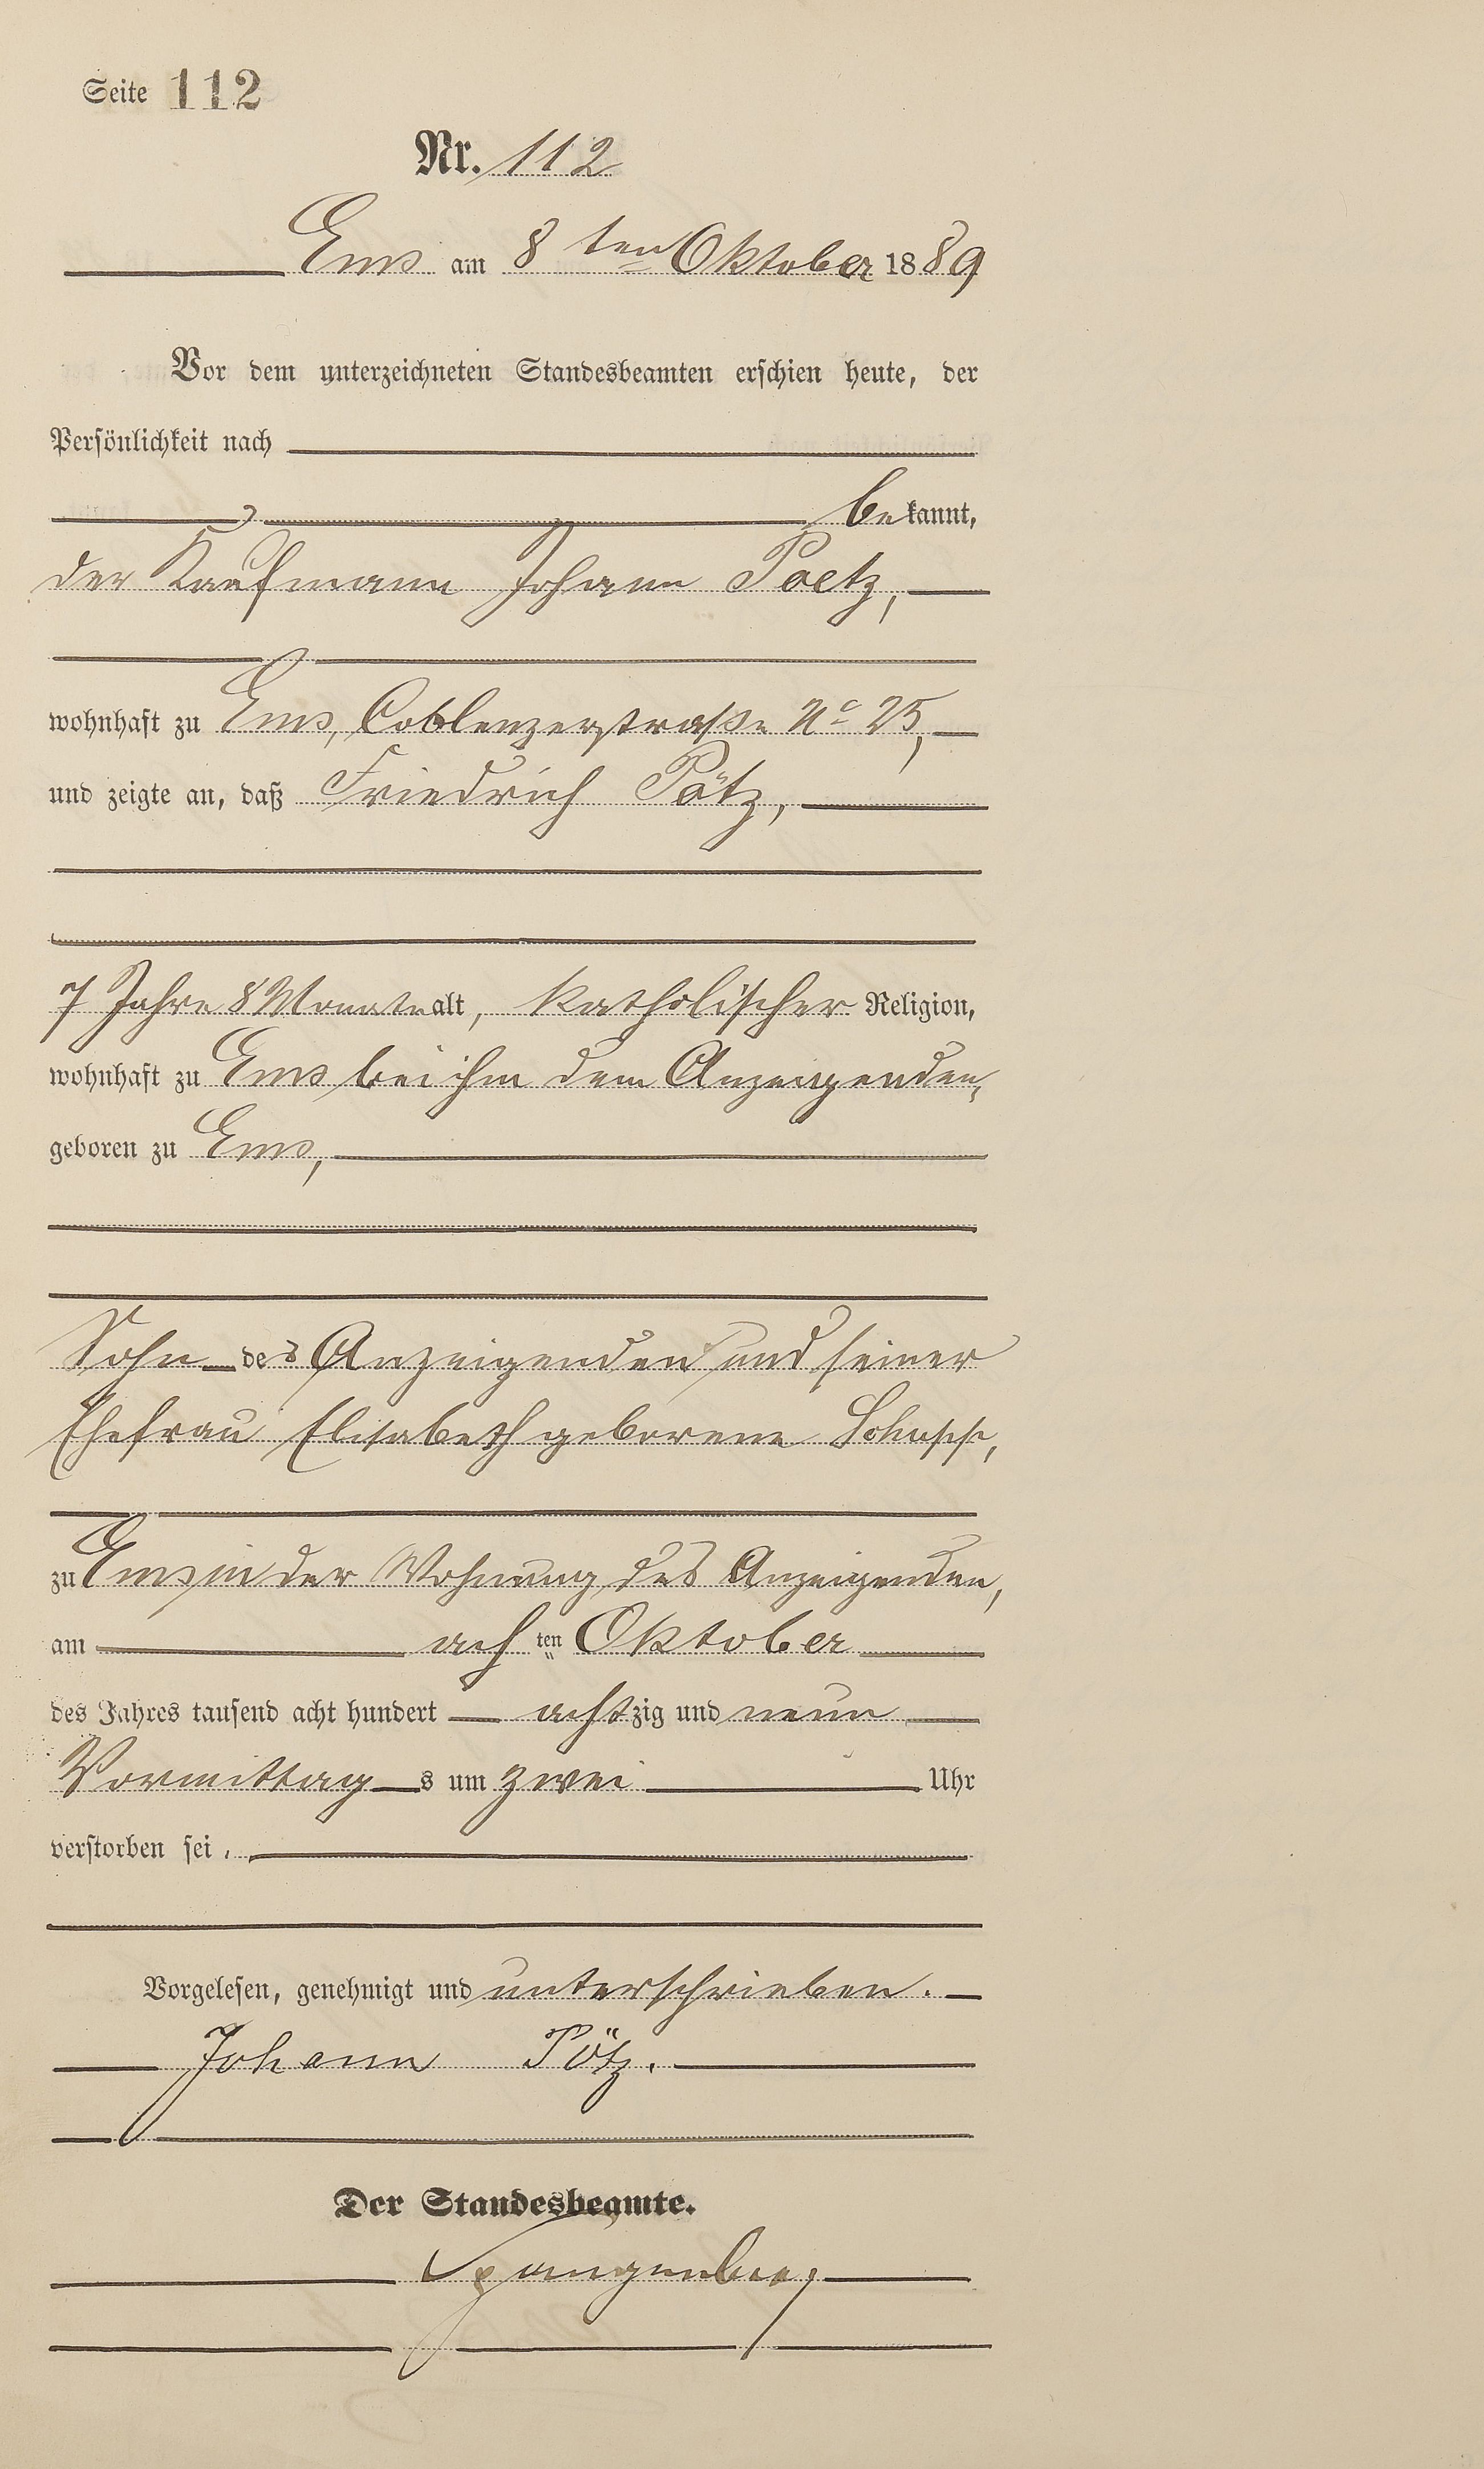 Seite 112
Nr. 112
Ems am 8ten Oktober 1889
Vor dem unterzeichneten Standesbeamten erschien heute, der
Persönlichkeit nach
bekannt,
der Kaufmann Johann Poetz,
wohnhaft zu Ems, Coblenzerstraße No 25,
und zeigte an, daß Friedrich Pötz,
7 Jahre 8 Monate alt, katholischer Religion,
wohnhaft zu Ems bei ihm dem Anzeigenden,
geboren zu Ems,
Sohn des Anzeigenden und seiner
Ehefrau Elisabeth geborene
zu Ems in der Wohnung des Anzeigenden,
am achten Oktober
des Jahres tausend acht hundert achtzig und neun
Vormittags um zwei Uhr
verstorben sei.
Vorgelesen, genehmigt und unterschrieben.
Johann Pötz.
Der Standesbeamte.
Spangenberg